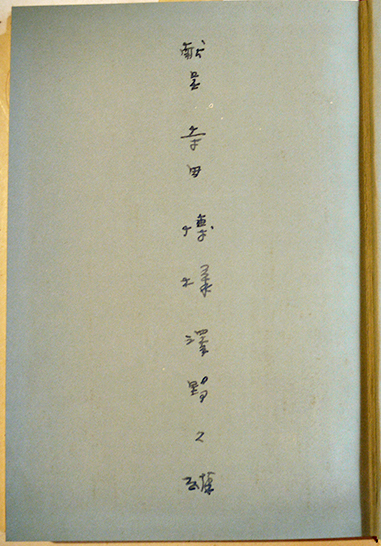 献呈 寺田博様 澤野久雄